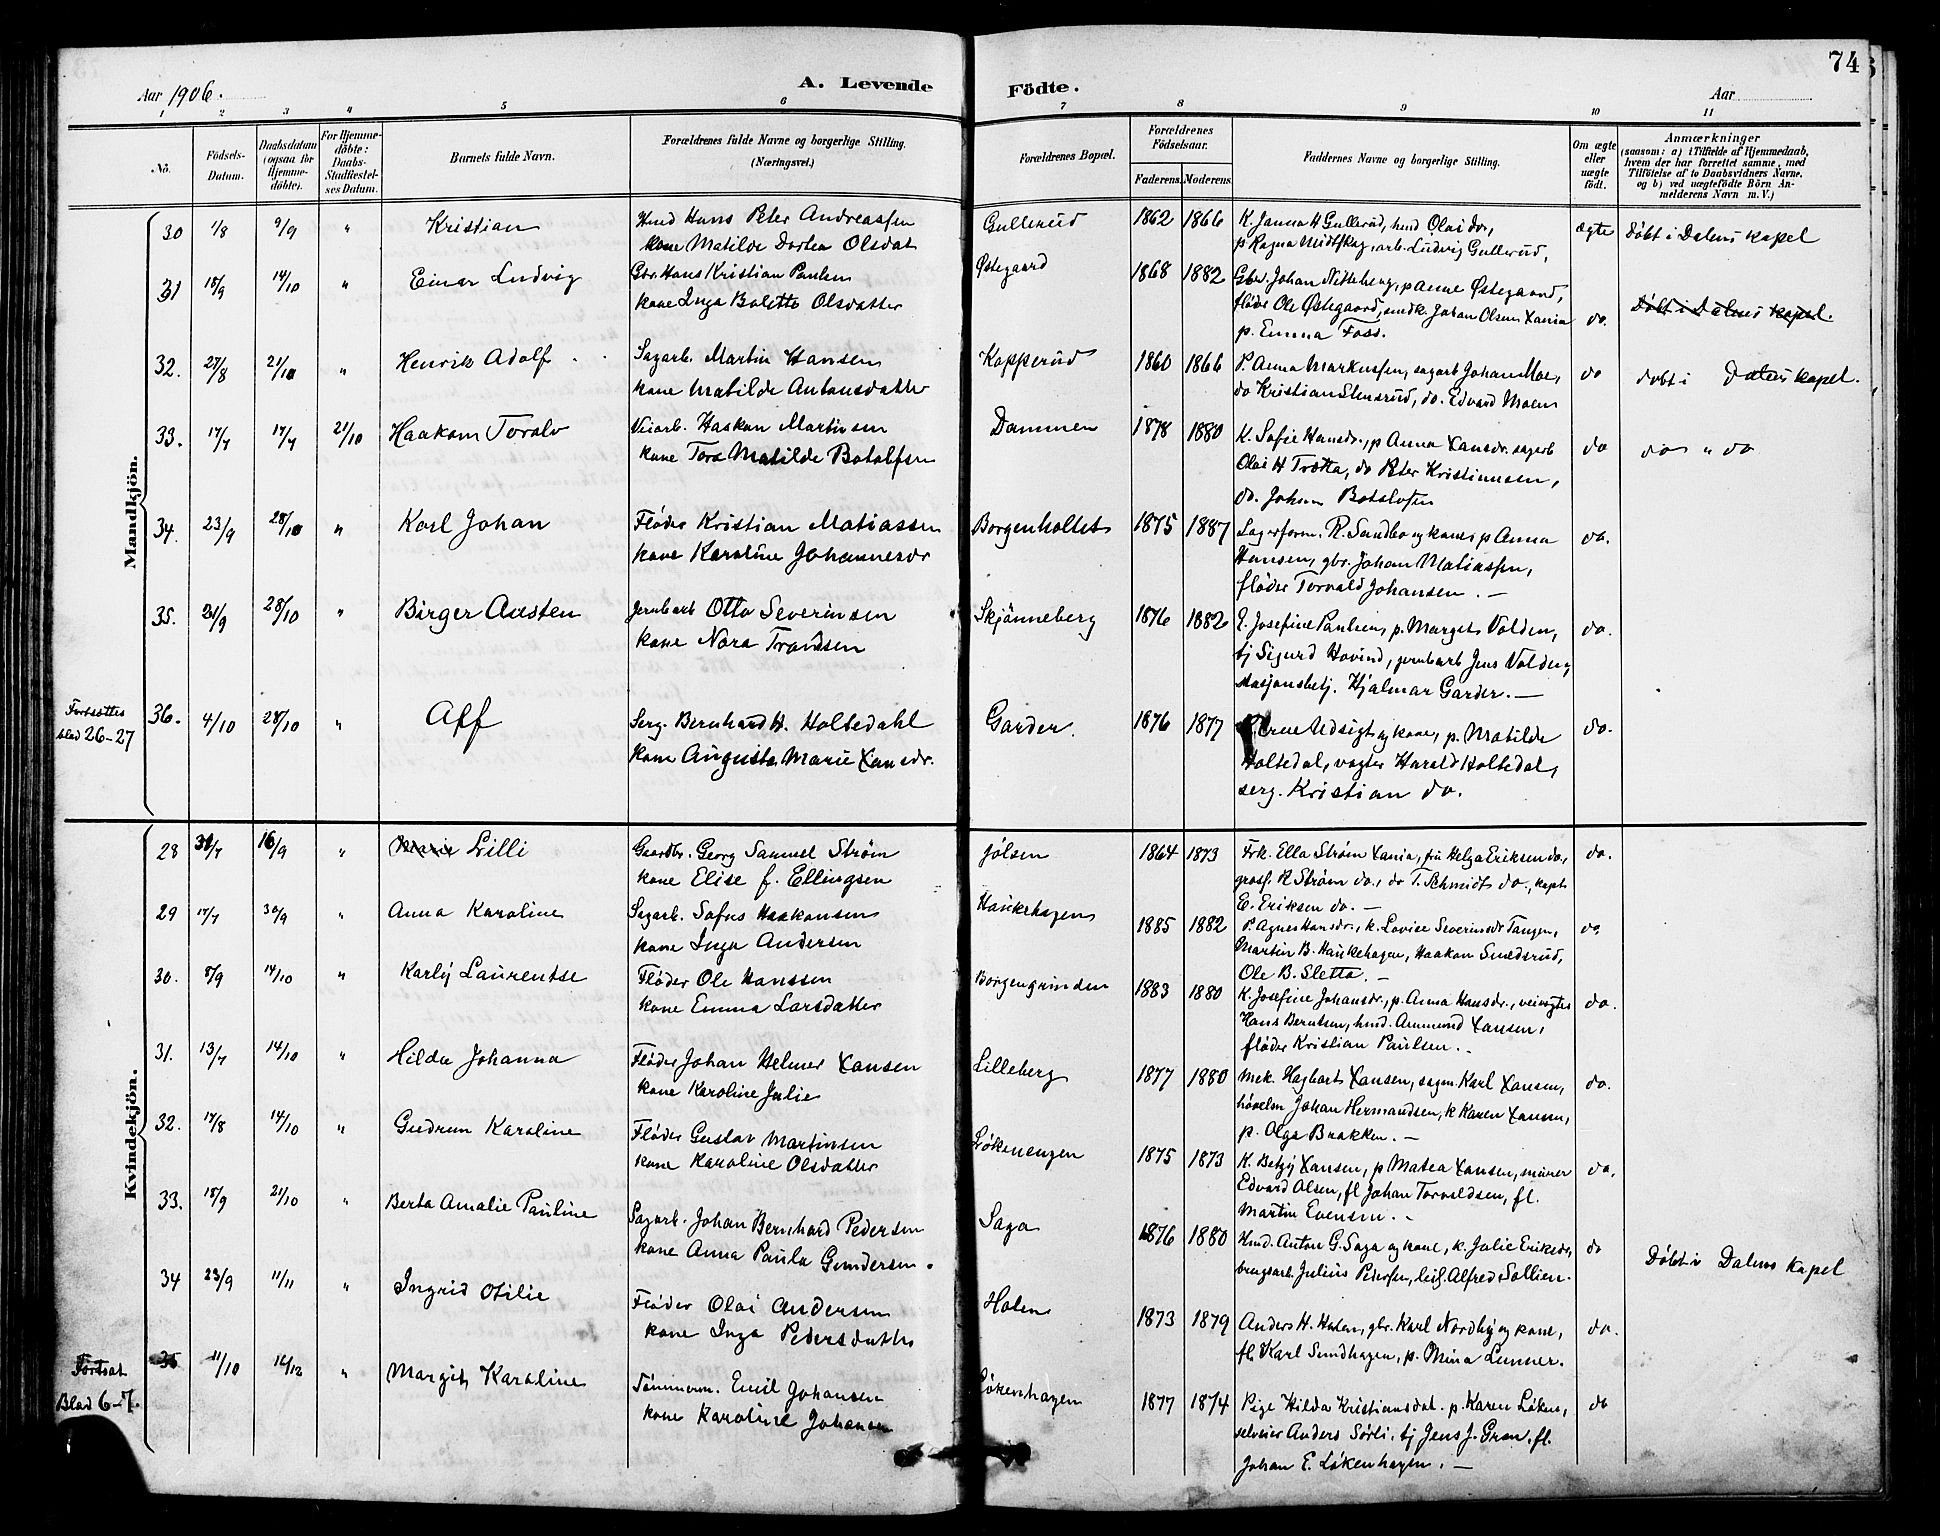 74
Aar 1906.
A. Levende
Födte.
Aar
1
2
3
4
5
6
7
8
9
10
11
No.
Födsels-
Datum.
Daabsdatum
(ogsaa for
Hjemme-
döbte).
For Hjemme-
döbte:
Daabs-
Stadfæstel-
ses Datum.
Barnets fulde Navn.
Forældrenes fulde Navne og borgerlige Stilling.
(Næringsvei.)
Forældrenes Bopæl.
Forældrenes
Födselsaar.
Faderens. Moderens.
Faddernes Navne og borgerlige Stilling.
Om ægte
eller
uægte
födt.
Anmærkninger
(saasom: a) i Tilfælde af Hjemmedaab,
hvem der har forrettet samme, med
Tilföielse af to Daabsvidners Navne,
og b) ved uægtefödte Börn An-
melderens Navn m. V.)
Mandkjön.
30 1/8 9/9 " Kristian
Hmd Hans Peter Andreassen
kone Matilde Dorthea Olsdat
Gullerud 1862 1866
K Janna H Gullerud, hmd Olai do,
p Ragna Midtskog, arb. Ludvig Gullerud,
ægte Døbt i Dalens kapel
31 15/9 14/10 " Einar Ludvig
Gbr. Hans Kristian Paulsen
kone Inga Bolette Olsdatter
Østegaard 1868 1882
Gbr. Johan Nitteberg, p Anne Østegaard,
fløder Ole Østegaard, smdk. Johan Olsen Xania
p. Emma Foss.
do. Døbt i Dalens kapel.
32. 27/8 21/10 " Henrik Adolf
Sagarb. Martin Hansen
kone Matilde Antonsdatter
Kopperud 1860 1866
P. Anna Markussen, sagarb Johan Moe,
do Kristian Stensrud, do. Edvard Moen
do døbt i Dalens kapel.
33. 17/7 17/7 21/10 Haakon Toralv
Veiarb. Haakon Martinsen
kone Tora Matilde Botolfsen
Dammen 1878 1880
K. Sofie Hansdr., p Anna Xansdr. sagarb
Olai H Trøtta, do Peter Kristiansen,
do. Johan Botolvsen
do do " do
34. 23/9 28/10 " Karl Johan
Fløder Kristian Matiassen
kone Karoline Johannesdr
Borgenholtet 1875 1887
Lagerform. R. Sandbo og kone, p Anna
Hansen, gbr. Johan Matiassen,
fløder Torvald Johansen. —
do.
35. 21/9 28/10 " Birger Austen
Jernbarb Otto Severinsen
kone Nora Trondsen
Skjønneberg 1876 1882
E. Josefine Paulsen, p. Margit Volden,
tj Sigurd Hovind, jernbarb Jens Volden,
stasjonsbetj. Hjalmar Garder. —
do.
Fortsættes
blad 26-27
36. 4/10 28/10 " Alf
Serg. Bernhard H. Holtedahl
kone Augusta Marie Xansdr.
Garder. 1876 1877
Arne Udsigt og kone, p. Matilde
Holtedal, vogter Harald Holtedal,
serg. Kristian do.
do.
Kvindekjön.
28 31/7 16/9 " Marie Lilli
Gaardbr. Georg Samuel Strøm
kone Elise f. Ellingsen
Jølsen 1864 1873
Frk. Ella Strøm Xania, fru Helga Eriksen do,
gross. R Strøm do., do T. Schmidt do., kapt
E. Eriksen do. —
do.
29 17/7 30/9 " Anna Karoline
Sagarb. Sofus Haakonsen
kone Inga Andersen
Haukehagen 1885 1882
P. Agnes Hansdr., k. Lovise Severinsdr Tangen,
Martin B. Haukehagen, Haakon Smedsrud,
Ole B. Sletta. —
do
30. 8/9 14/10 " Karly Laurentse
Fløder Ole Hanssen
kone Emma Larsdatter
Borgengrinden 1883 1880
K. Josefine Johansdr., p. Anna Hansdr., veivogter
Hans Berntsen, hmd. Ammund Xansen,
fløder Kristian Paulsen. -
do.
31. 13/7 14/10 " Hilda Johanna
Fløder Johan Helmer Xansen
kone Karoline Julie
Lilleberg 1877 1880
Mek. Hagbart Xansen, sagm Karl Xansen,
høvelm Johan Hermandsen, k Karen Xansen,
p. Olga Brakken. —
do.
32. 17/8 14/10 " Gudrun Karoline
Fløder Gustav Martinsen
kone Karoline Olsdatter
Løkenengen 1875 1873
K. Betzy Xansen, p Matea Xansen, murer
Edvard Olsen, fl Johan Torvaldsen, fl.
Martin Evensen. -
do.
33. 18/9 21/10 " Berta Amalie Pauline
Sagarb. Johan Bernhard Pedersen
kone Anna Paula Gundersen.
Saga 1876 1880
Hmd. Anton G. Saga og kone, k. Julie Eriksdr,
brugsarb. Julius Pedersen, leil. Alfred Sollien.
do Døbt i Dalens kapel
34 23/9 11/11 " Ingrid Otilie
Fløder Olai Andersen
kone Inga Pedersdatter
Holen 1873 1879
Anders H. Holen, gbr. Karl Nordby og kone,
fl Karl Sundhagen, p. Mina Lunner.
do.
Fortsat
Blad 6-7.
35 11/10 16/12 " Margit Karoline
Tømmerm. Emil Johansen
kone Karoline Johansen
Løkenhagen 1877 1874
Pige Hilda Kristiansdat. p. Karen Løken,
selveier Anders Sørli, tj Jens J. Gran, fl.
Johan E. Løkenhagen. —
do